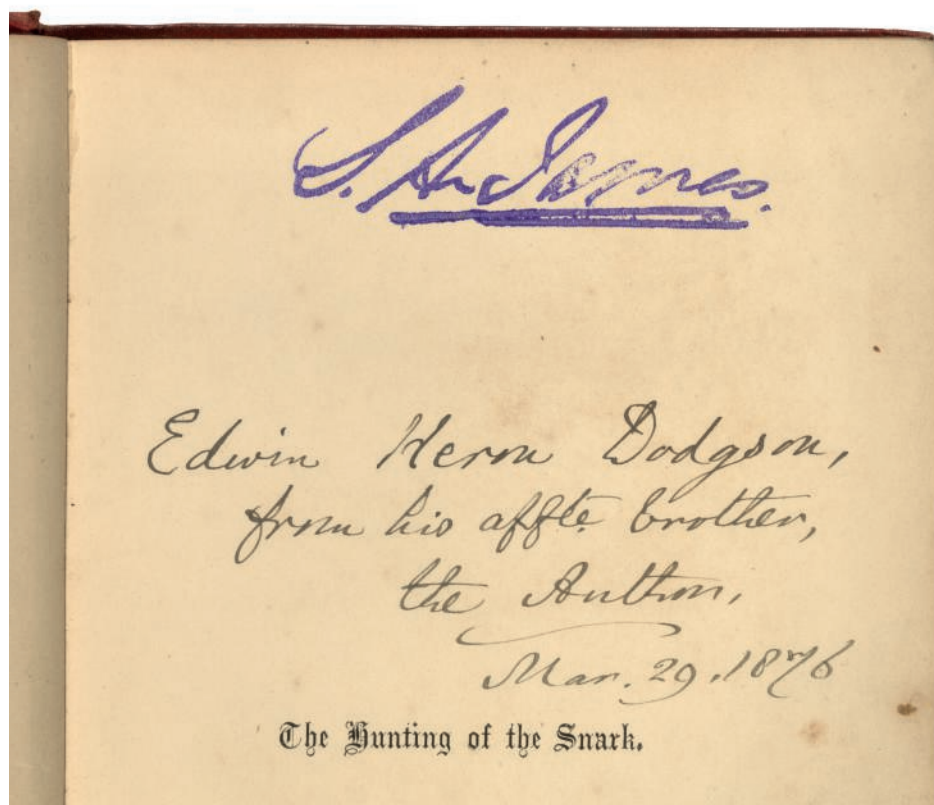 S. A. James.
Edwin Heron Dodgson,
from his affte. brother,
the Author,
Mar. 29. 1876
The Hunting of the Snark.